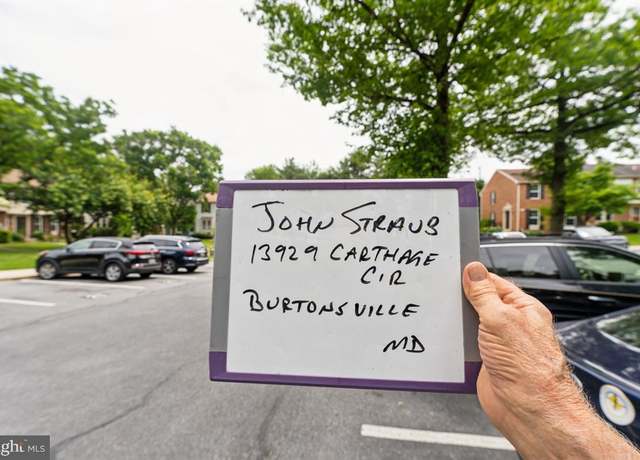 JOHN STRAUB
13929 CARTHAGE
CIR
BURTONSVILLE
MD
ght MLS